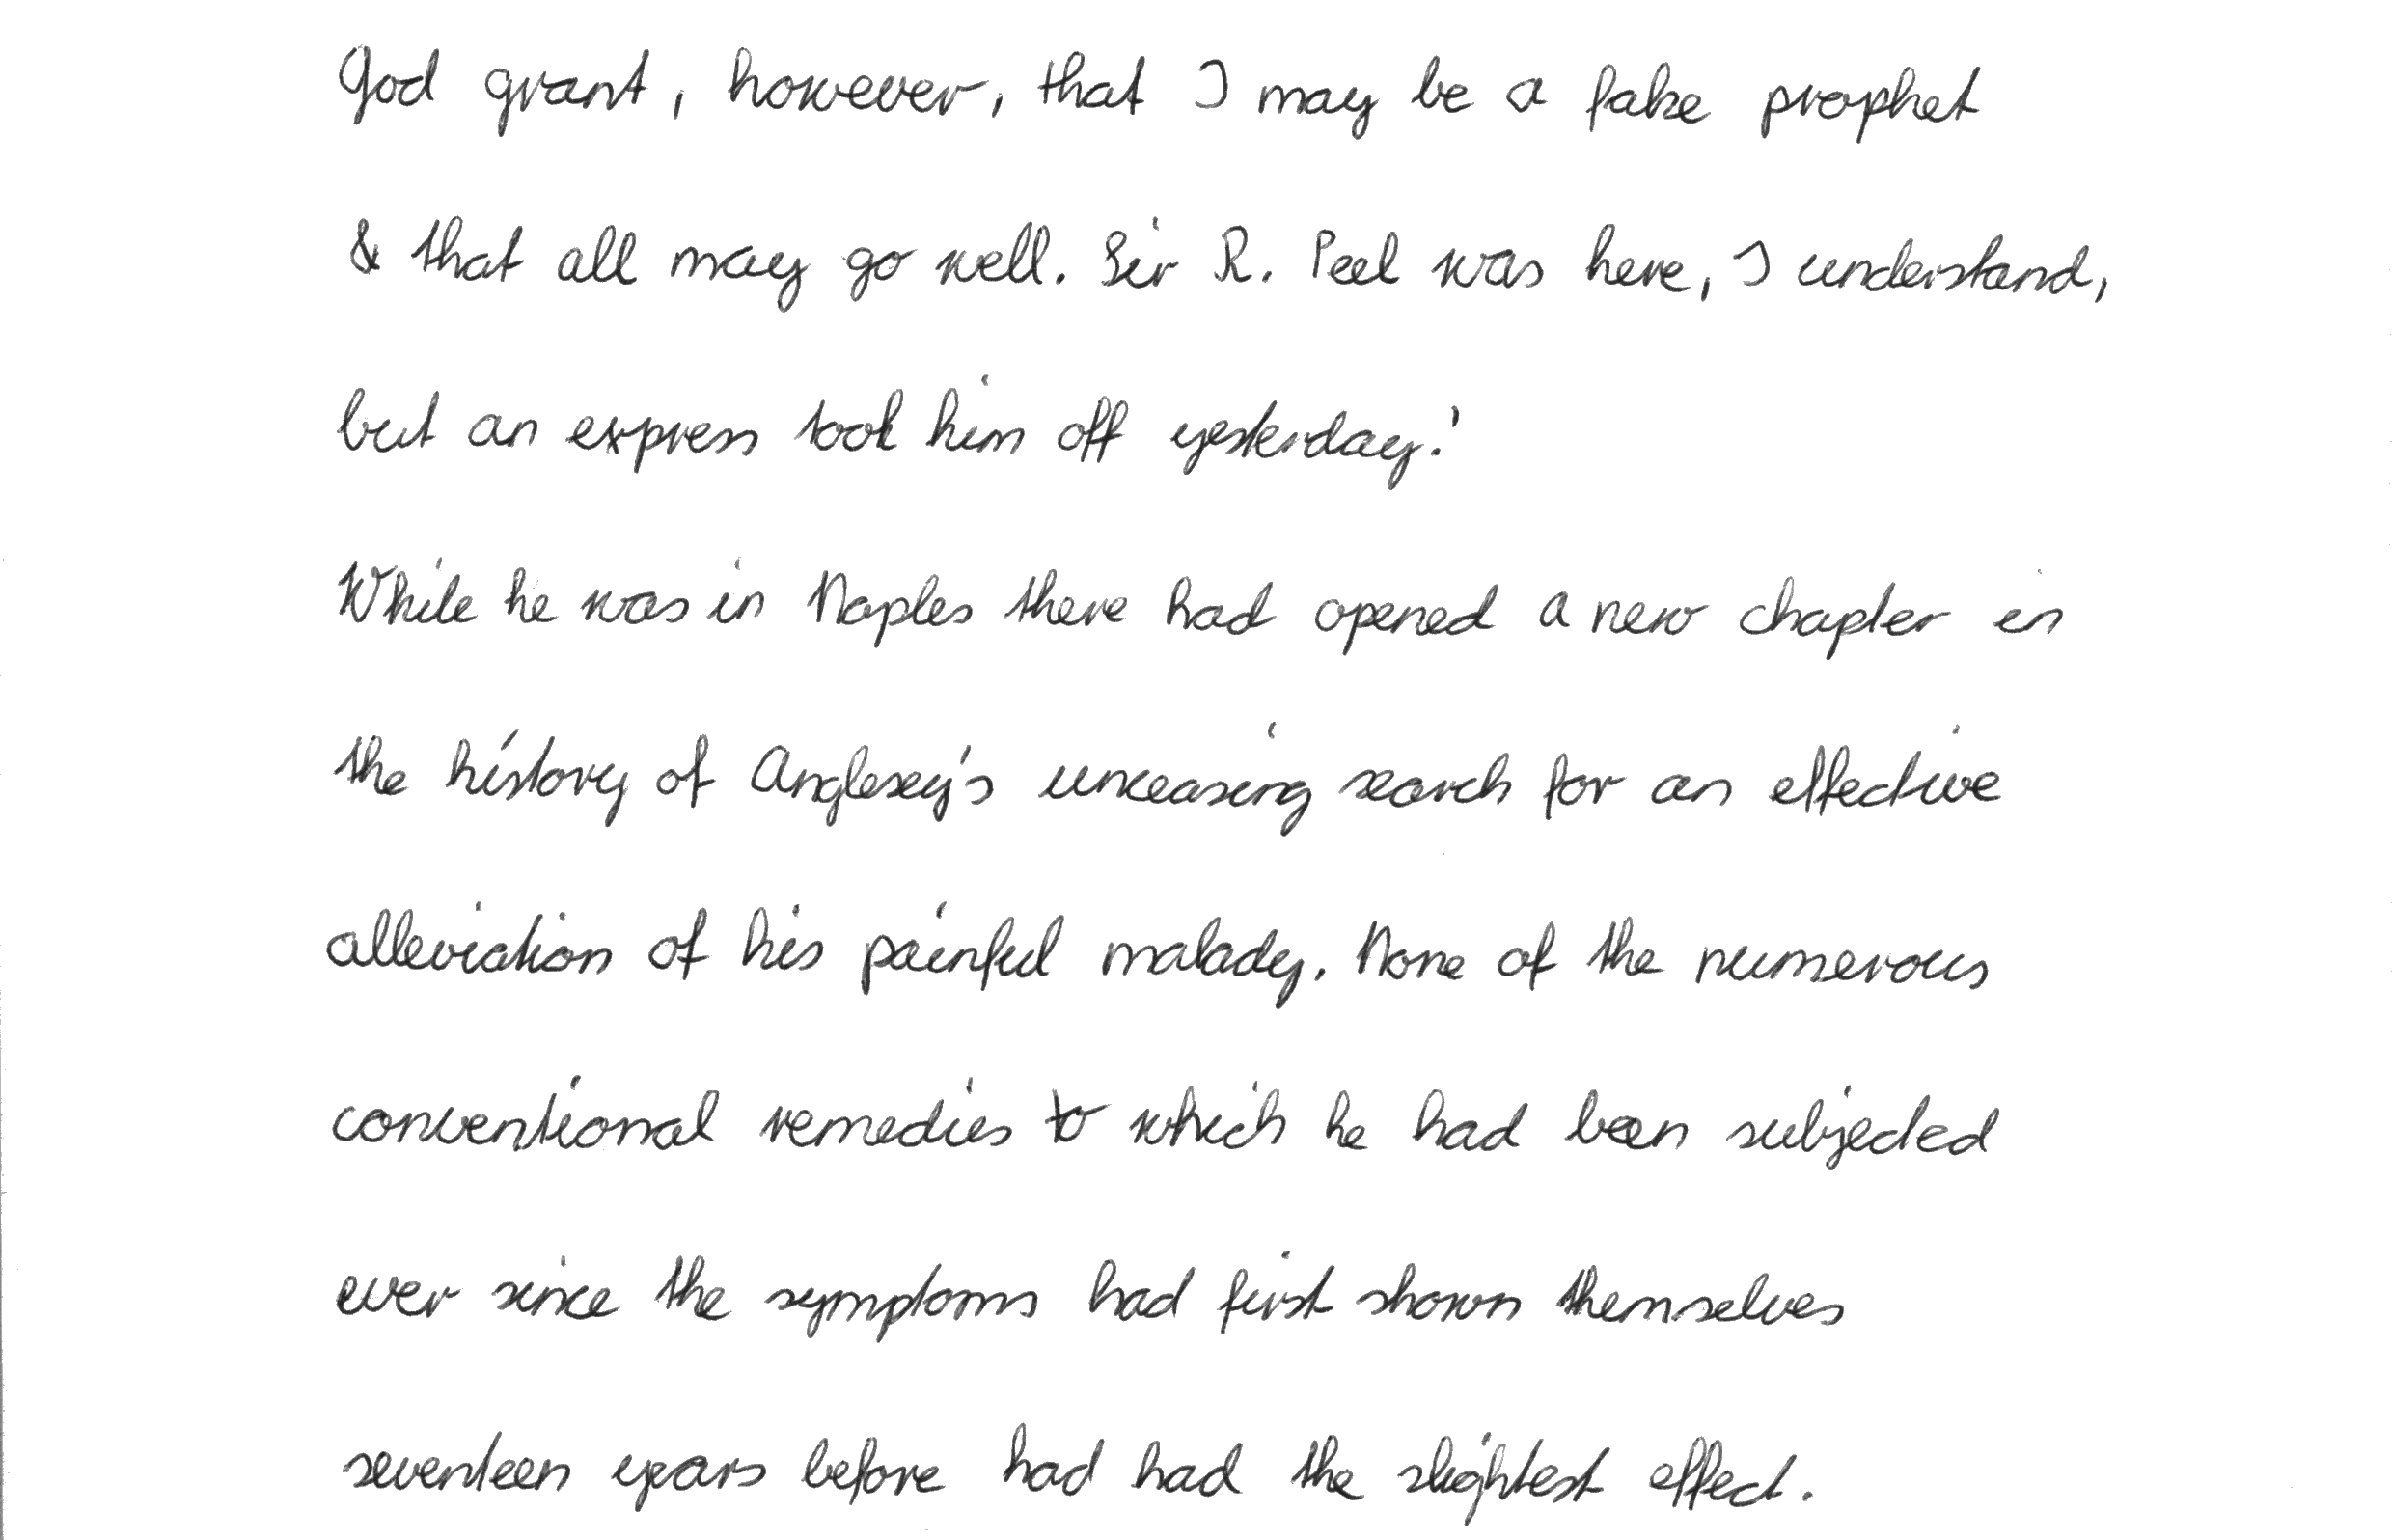 God grant, however, that I may be a false prophet
& that all may go well. Sir R. Peel was here, I understand,
but an express took him off yesterday.'
While he was in Naples there had opened a new chapter in
the history of Anglesey's unceasing search for an effective
alleviation of his painful malady. None of the numerous
conventional remedies to which he had been subjected
ever since the symptoms had first shown themselves
seventeen years before had had the slightest effect.